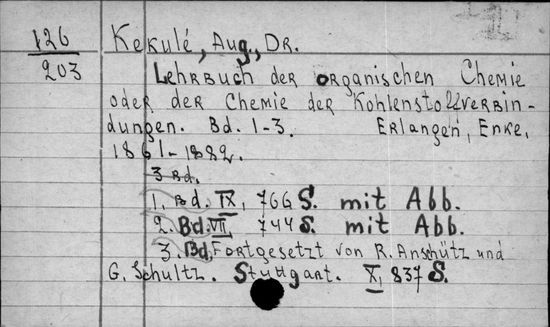 126
203
Kekulé, Aug., Dr.
Lehrbuch der organischen Chemie
oder der Chemie der Kohlenstoffverbin-
dungen. Bd. 1-3. Erlangen, Enke,
1861-1882.
3 Bd.
1. Bd. IX, 766 S. mit Abb.
2. Bd. VII, 744 S. mit Abb.
3. Bd. Fortgesetzt von R. Anschütz und
G. Schultz. Stuttgart. X, 837 S.